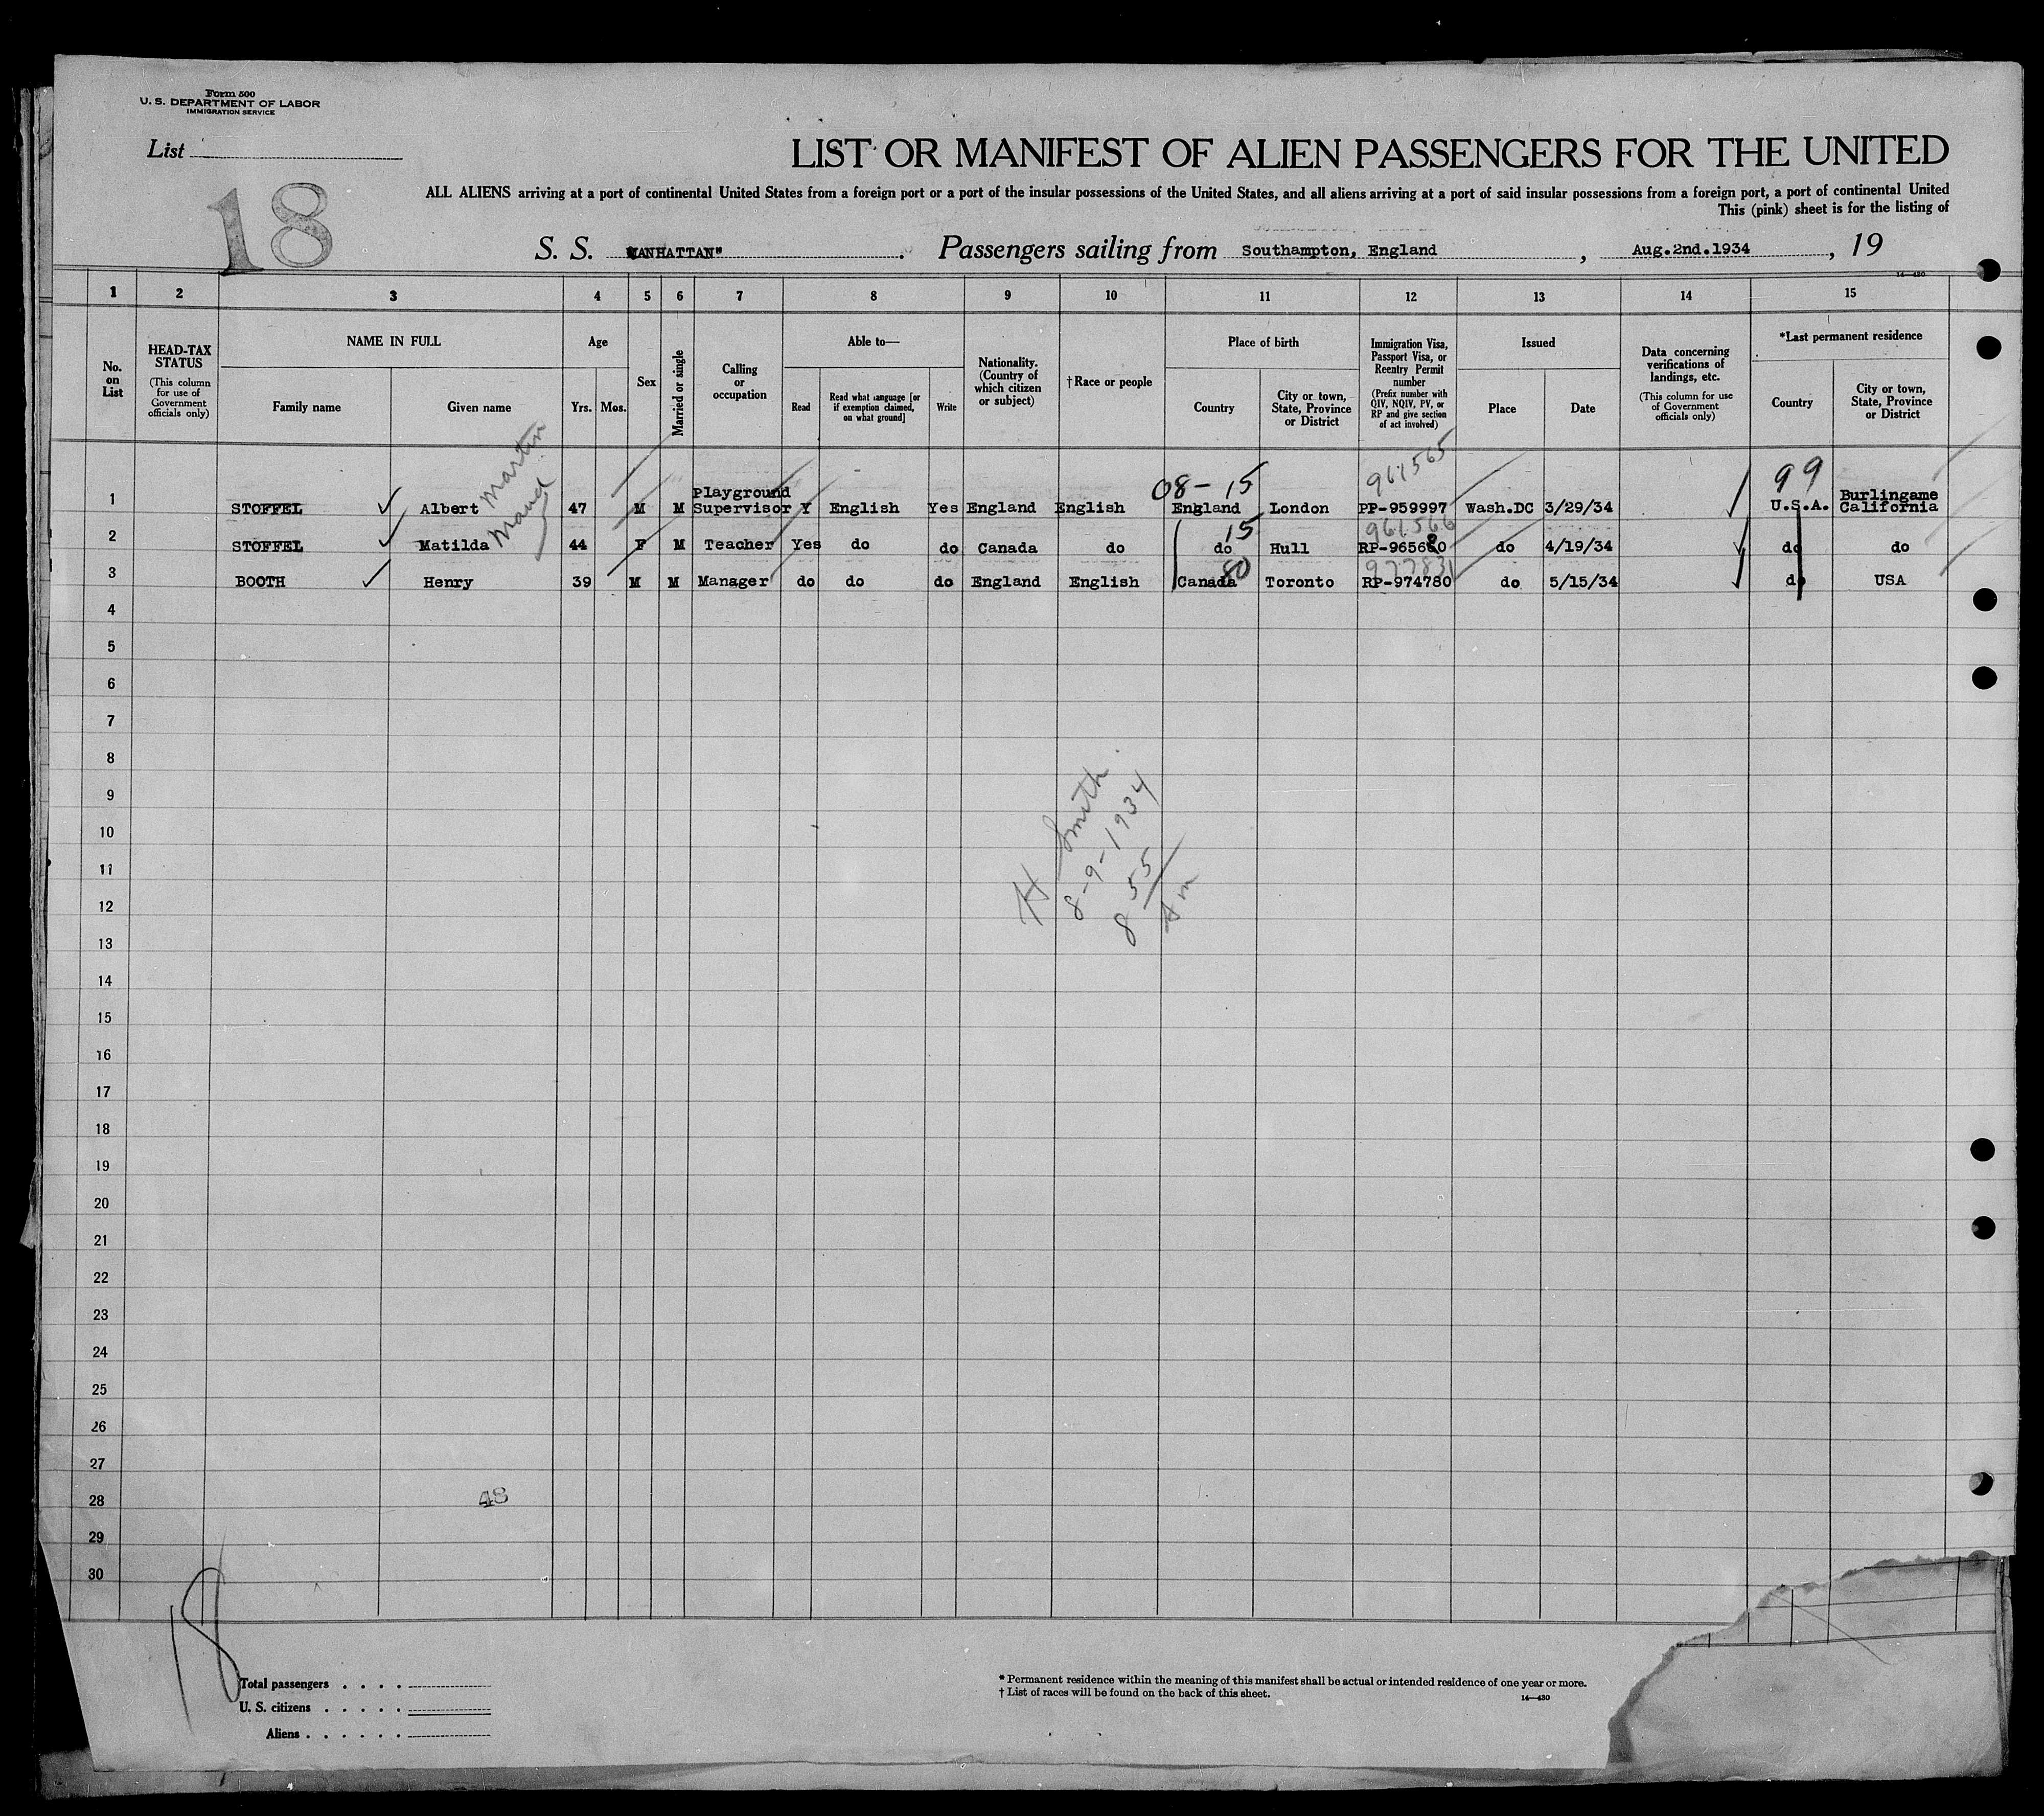 Form 500
U. S. DEPARTMENT OF LABOR
IMMIGRATION SERVICE
List
18
LIST OR MANIFEST OF ALIEN PASSENGERS FOR THE UNITED
ALL ALIENS arriving at a port of continental United States from a foreign port or a port of the insular possessions of the United States, and all aliens arriving at a port of said insular possessions from a foreign port, a port of continental United
This (pink) sheet is for the listing of
S. S. MANHATTAN" . Passengers sailing from Southampton, England , Aug.2nd.1934 , 19
14—430
1 2 3 4 5 6 7 8 9 10 11 12 13 14 15
No. on List
HEAD-TAX STATUS
(This column for use of Government officials only)
NAME IN FULL
Family name
Given name
Age
Yrs.
Mos.
Sex
Married or single
Calling or occupation
Able to—
Read
Read what language [or if exemption claimed, on what ground]
Write
Nationality. (Country of which citizen or subject)
† Race or people
Place of birth
Country
City or town, State, Province or District
Immigration Visa, Passport Visa, or Reentry Permit number
(Prefix number with QIV, NQIV, PV, or RP and give section of act involved)
Issued
Place
Date
Data concerning verifications of landings, etc.
(This column for use of Government officials only)
*Last permanent residence
Country
City or town, State, Province or District
Martin
961565
08-15
99
1 STOFFEL Albert 47 M M Playground Supervisor Y English Yes England English England London PP-959997 Wash.DC 3/29/34 U.S.A. Burlingame California
Maud
15
961566
2 STOFFEL Matilda 44 F M Teacher Yes do do Canada do do Hull RP-965680 do 4/19/34 do do
80
977831
3 BOOTH Henry 39 M M Manager do do do England English Canada Toronto RP-974780 do 5/15/34 do USA
4
5
6
7
8
9
10
11
12
13
14
15
16
17
18
19
20
21
22
23
24
25
26
27
28
29
30
H Smith
8-9-1934
8 55
Am
48
18
Total passengers . . . .
U. S. citizens . . . . .
Aliens . . . . . .
* Permanent residence within the meaning of this manifest shall be actual or intended residence of one year or more.
† List of races will be found on the back of this sheet.
14—430